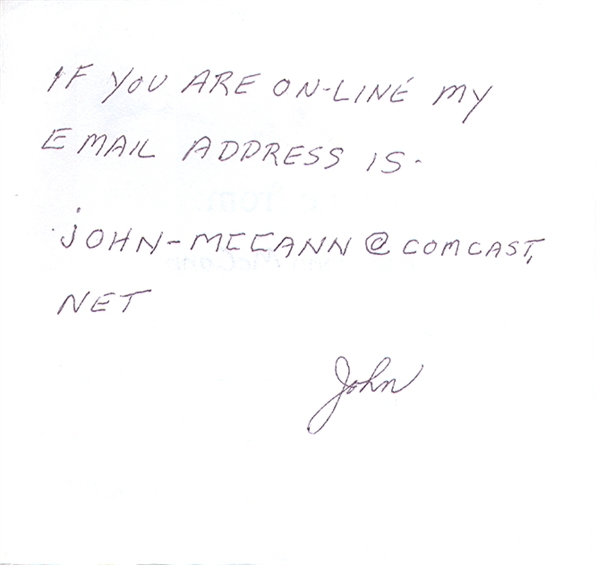 IF YOU ARE ON-LINE MY
EMAIL ADDRESS IS-
JOHN-MCCANN@COMCAST,
NET
John